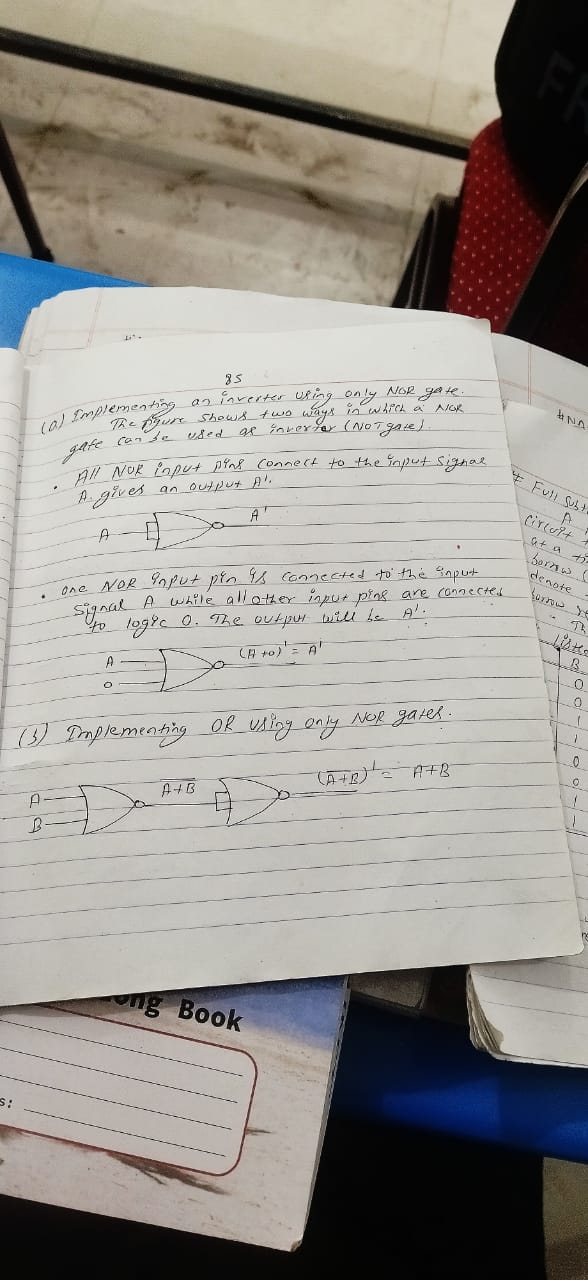 85
(a) Implementing an inverter using only NOR gate.
The figure shows two ways in which a NOR
gate can be used as inverter (NOT gate).
• All NOR input pins connect to the input signal
A. gives an output A'.
A A'
• one NOR input pin is connected to the input
signal A while all other input pins are connected
to logic 0. The output will be A'.
A
0
(A+0)' = A'
(b) Implementing OR using only NOR gates.
A
B
A+B
(A+B)' = A+B
#NA
# Full Subt
A
circuit
at a ti
borrow
denote
borrow
Th
Liste
B
0
0
1
1
0
0
1
1
ong Book
s:
FR